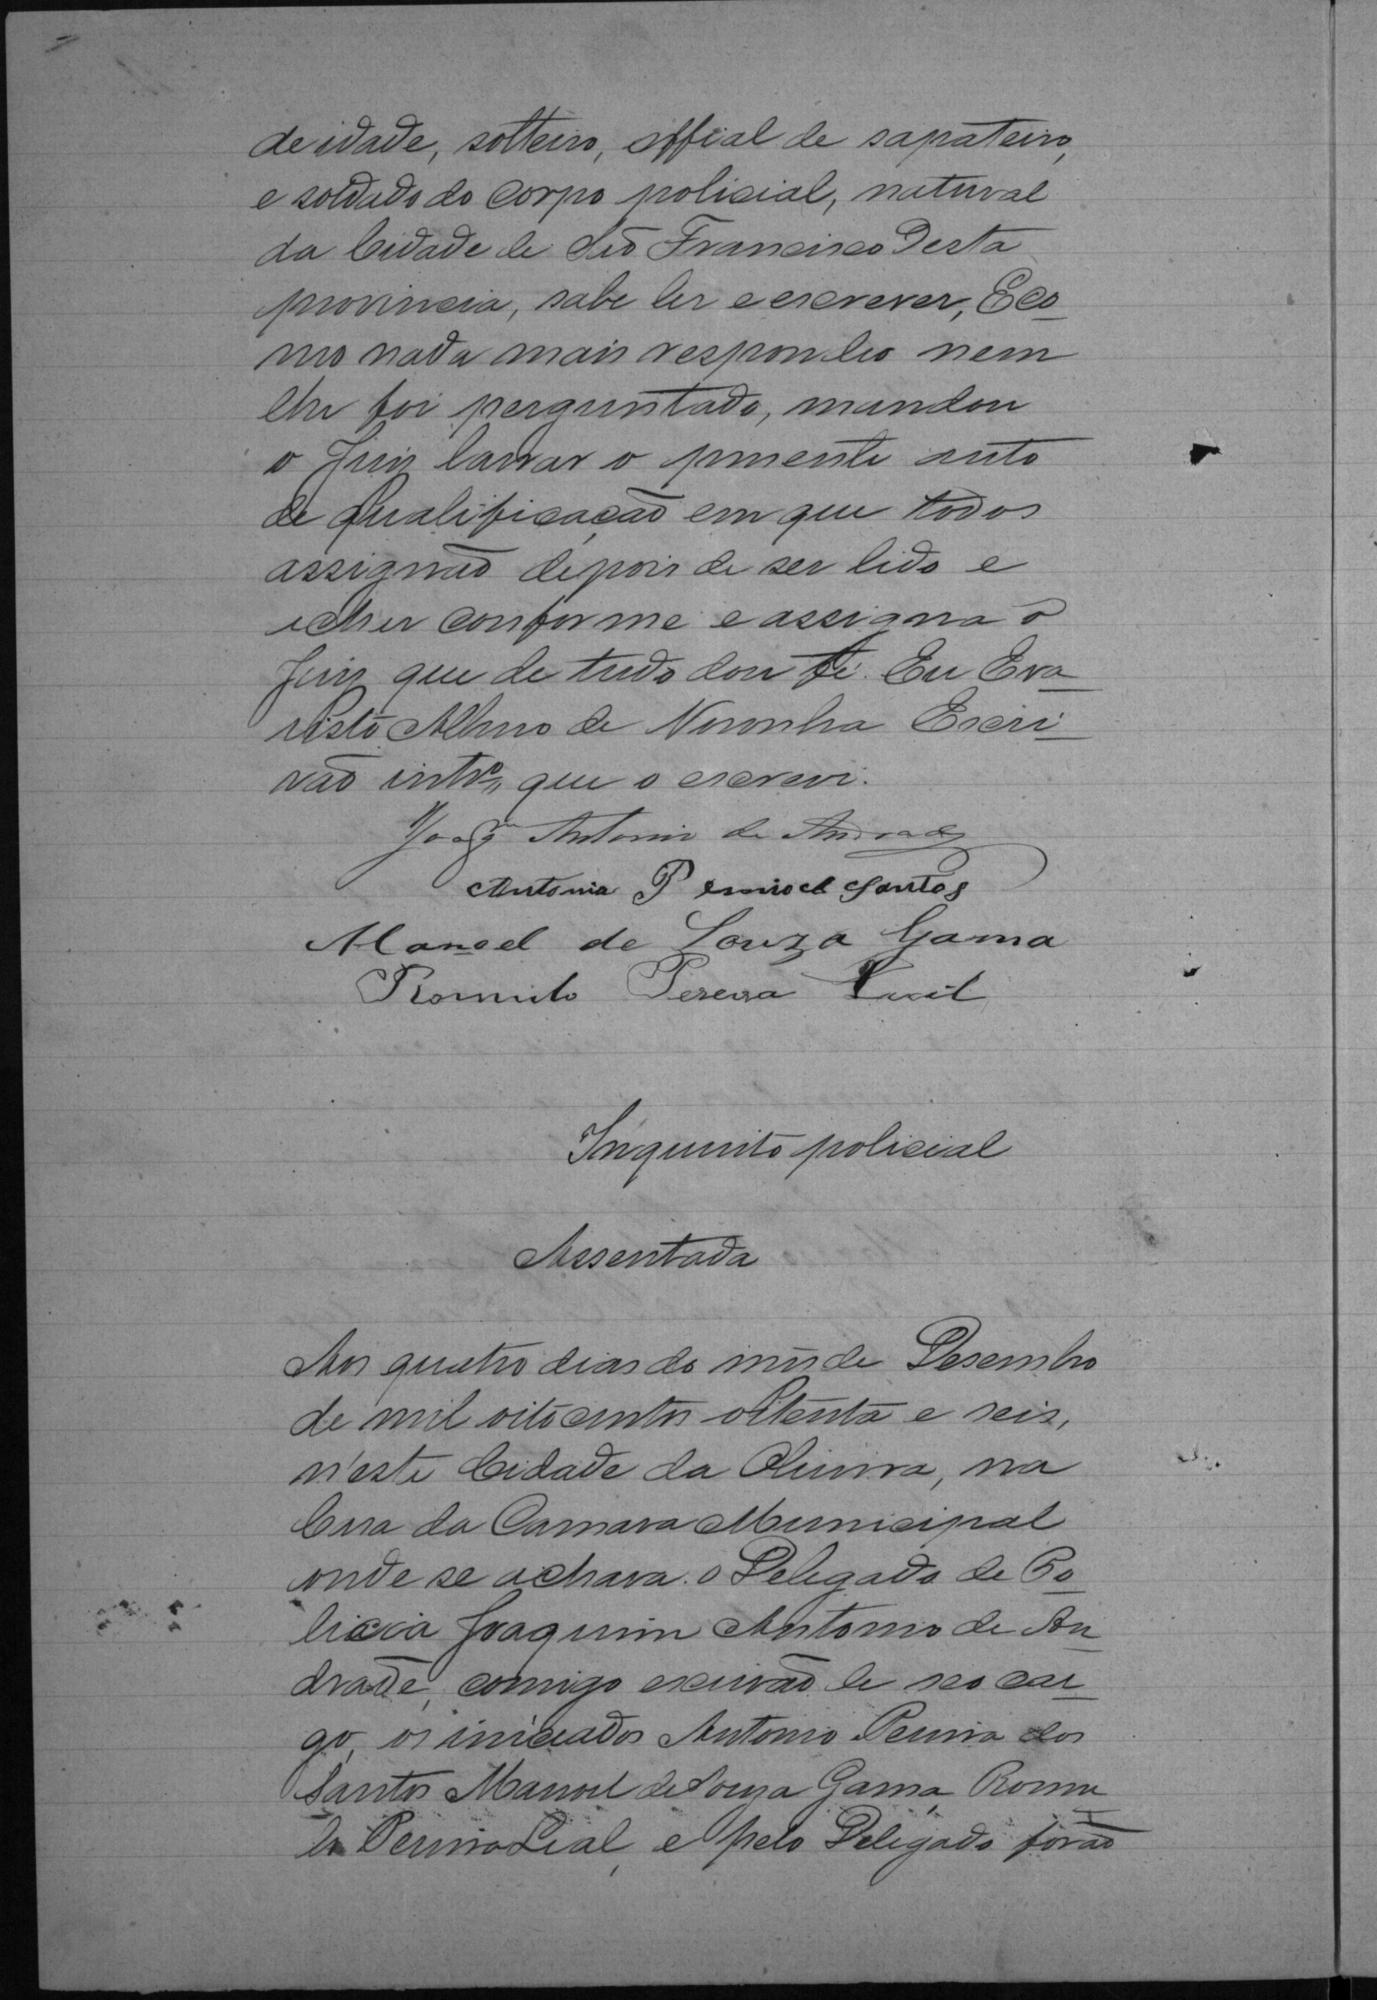 de idade, solteiro, offical de sapateiro,
e soldado do corpo policial, natural
da Cidade de São Francisco desta
provincia, sabe ler e escrever, E co-
mo nada mais respondeo nem
lhe foi perguntado, mandou
o Juiz lavrar o presente auto
de qualificação em que todos
assignão depois de ser lido e
achar conforme e assigna o
Juiz que de tudo dou fé. Eu Eva-
risto Albino de Noronha Escri-
vão intrº que o escrevi.
Joaqm Antonio de Andrade
Antonio Pereira dos Santos
Manoel de Souza Gama
Romulo Pereira Lial
Inquerito policial
Assentada
Aos quatro dias do mês de Desembro
de mil oitocentos oitenta e seis,
n'esta Cidade da Oliveira, na
Casa da Camara Municipal
onde se achava o Delegado de Po-
licia Joaquim Antonio de An-
drade, comigo escrivão de seo car-
go, os iniciados Antonio Pereira dos
Santos Manoel de Souza Gama Romu-
lo Pereira Lial, e pelo Delegado forão